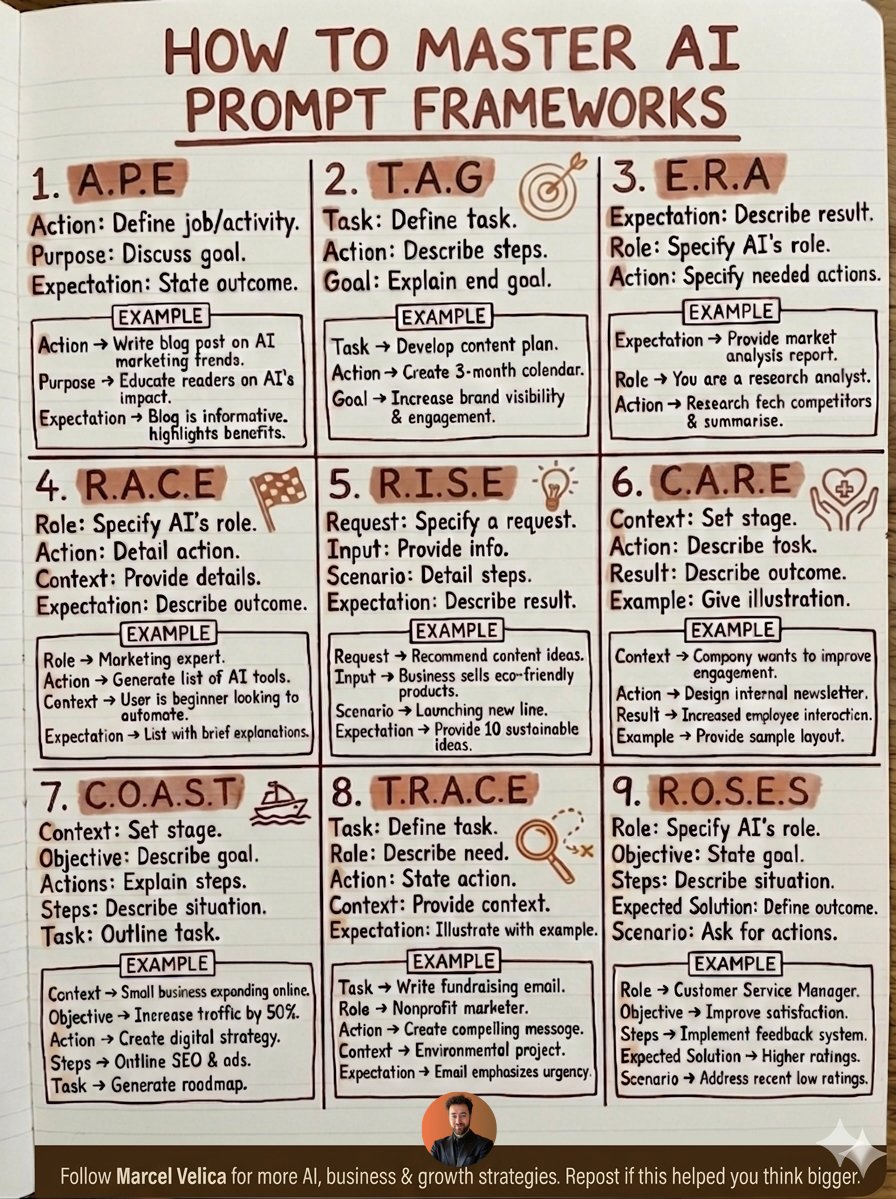 HOW TO MASTER AI
PROMPT FRAMEWORKS
1. A.P.E
Action: Define job/activity.
Purpose: Discuss goal.
Expectation: State outcome.
EXAMPLE
Action → Write blog post on AI
marketing trends.
Purpose → Educate readers on AI's
impact.
Expectation → Blog is informative.
highlights benefits.
2. T.A.G
Task: Define task.
Action: Describe steps.
Goal: Explain end goal.
EXAMPLE
Task → Develop content plan.
Action → Create 3-month colendar.
Goal → Increase brand visibility
& engagement.
3. E.R.A
Expectation: Describe result.
Role: Specify AI's role.
Action: Specify needed actions.
EXAMPLE
Expectation → Provide market
analysis report.
Role → You are a research analyst.
Action → Research fech competitors
& summarise.
4. R.A.C.E
Role: Specify AI's role.
Action: Detail action.
Context: Provide details.
Expectation: Describe outcome.
EXAMPLE
Role → Marketing expert.
Action → Generate list of AI tools.
Context → User is beginner looking to
automate.
Expectation → List with brief explanations.
5. R.I.S.E
Request: Specify a request.
Input: Provide info.
Scenario: Detail steps.
Expectation: Describe result.
EXAMPLE
Request → Recommend content ideas.
Input → Business sells eco-friendly
products.
Scenario → Launching new line.
Expectation → Provide 10 sustainable
ideas.
6. C.A.R.E
Context: Set stage.
Action: Describe tosk.
Result: Describe outcome.
Example: Give illustration.
EXAMPLE
Context → Company wants to improve
engagement.
Action → Design internal newsletter.
Result → Increased employee interaction.
Example → Provide sample layout.
7. C.O.A.S.T
Context: Set stage.
Objective: Describe goal.
Actions: Explain steps.
Steps: Describe situation.
Task: Outline task.
EXAMPLE
Context → Small business expanding online.
Objective → Increase traffic by 50%.
Action → Create digital strategy.
Steps → Outline SEO & ads.
Task → Generate roadmap.
8. T.R.A.C.E
Task: Define task.
Role: Describe need.
Action: State action.
Context: Provide context.
Expectation: Illustrate with example.
EXAMPLE
Task → Write fundraising email.
Role → Nonprofit marketer.
Action → Create compelling messoge.
Context → Environmental project.
Expectation → Email emphasizes urgency.
9. R.O.S.E.S
Role: Specify AI's role.
Objective: State goal.
Steps: Describe situation.
Expected Solution: Define outcome.
Scenario: Ask for actions.
EXAMPLE
Role → Customer Service Manager.
Objective → Improve satisfaction.
Steps → Implement feedback system.
Expected Solution → Higher ratings.
Scenario → Address recent low ratings.
Follow Marcel Velica for more AI, business & growth strategies. Repost if this helped you think bigger.